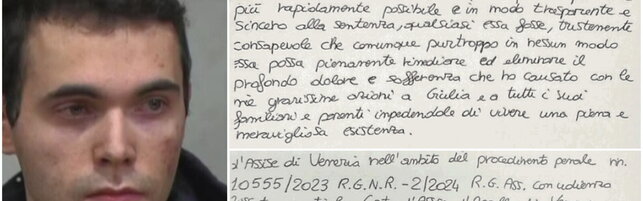 più rapidamente possibile e in modo trasparente e
sincero alla sentenza, qualsiasi essa fosse, tristemente
consapevole che comunque purtroppo in nessun modo
essa possa pienamente rimediare ed eliminare il
profondo dolore e sofferenza che ho causato con le
mie gravissime azioni a Giulia e a tutti i suoi
familiari e parenti impedendole di vivere una piena e
meravigliosa esistenza.
d'Assise di Venezia nell'ambito del procedimento penale nn.
10555/2023 R.G.N.R. - 2/2024 R.G. Ass. con udienza